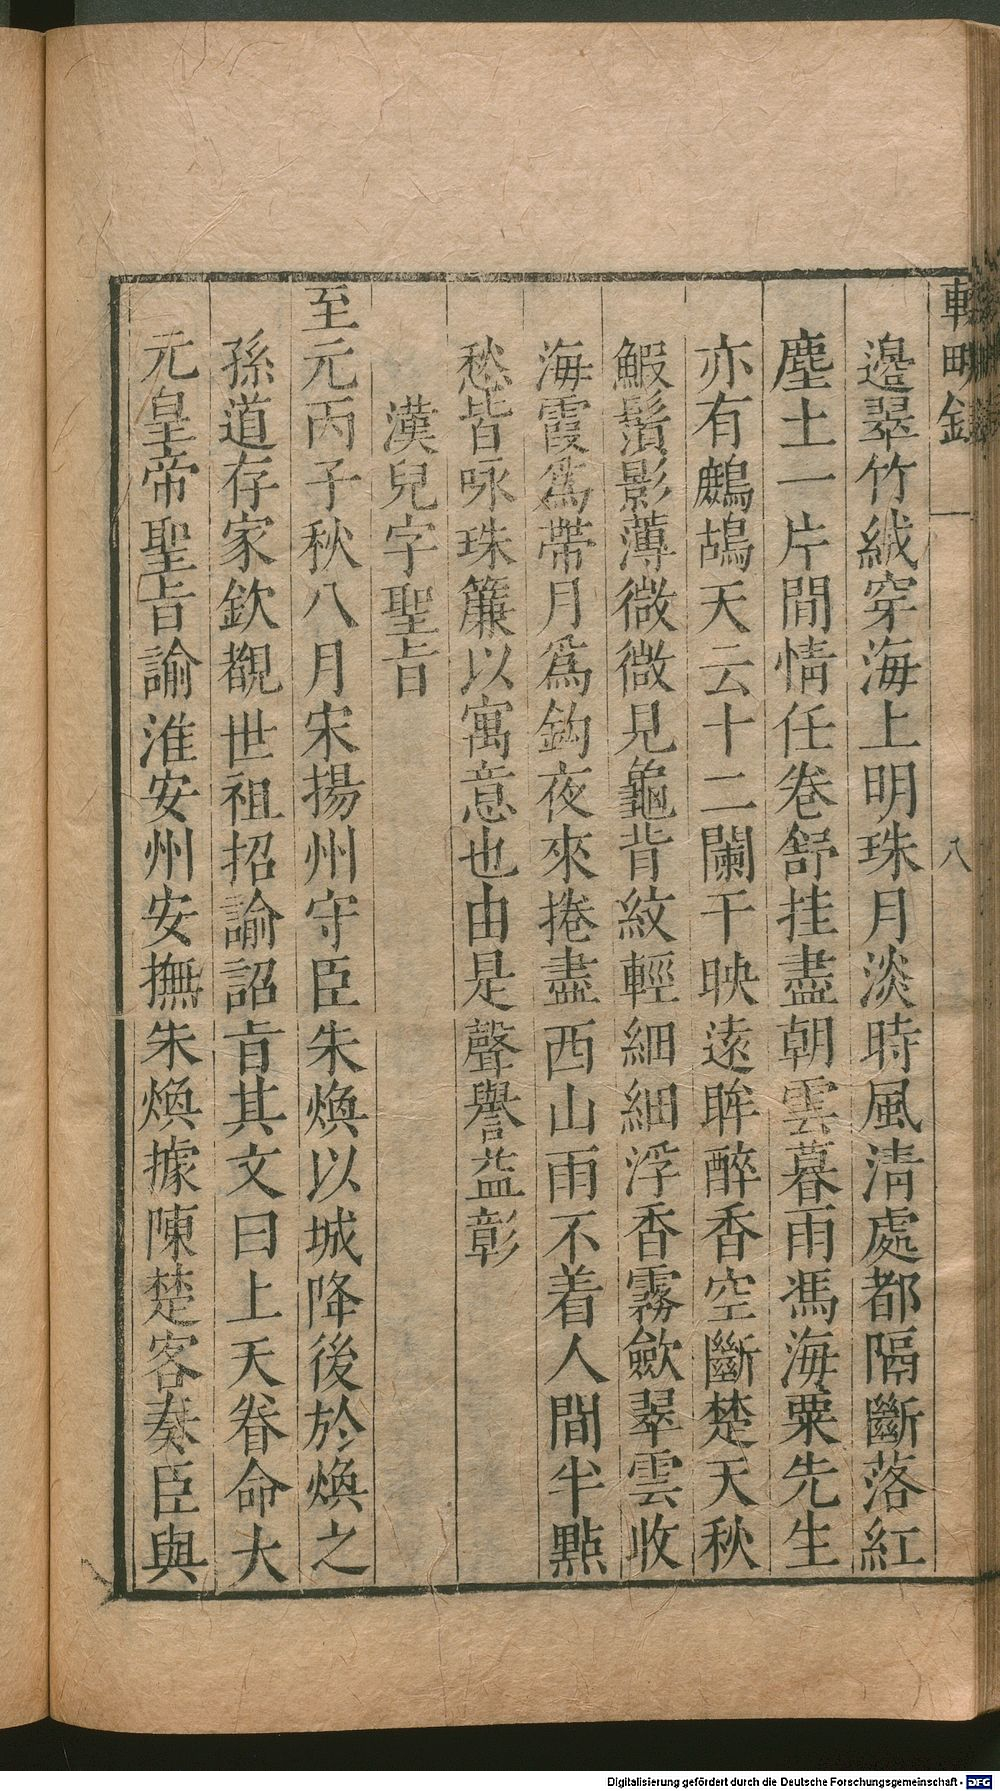 輟畊錄
八
邉翠竹絨穿海上明珠月淡時風淸處都隔斷落紅
塵土一片閒情任卷舒挂盡朝雲暮雨馮海粟先生
亦有鷓鴣天云十二闌干映遠眸醉香空斷楚天秋
鰕鬚影薄微微見龜背紋輕細細浮香霧歛翠雲收
海霞爲帶月爲鈎夜來捲盡西山雨不着人間半點
愁皆咏珠簾以寓意也由是聲譽益彰
漢兒字聖旨
至元丙子秋八月宋揚州守臣朱煥以城降後於煥之
孫道存家欽覩世祖招諭詔旨其文曰上天眷命大
元皇帝聖旨諭淮安州安撫朱煥據陳楚客奏臣與
Digitalisierung gefördert durch die Deutsche Forschungsgemeinschaft - DFG